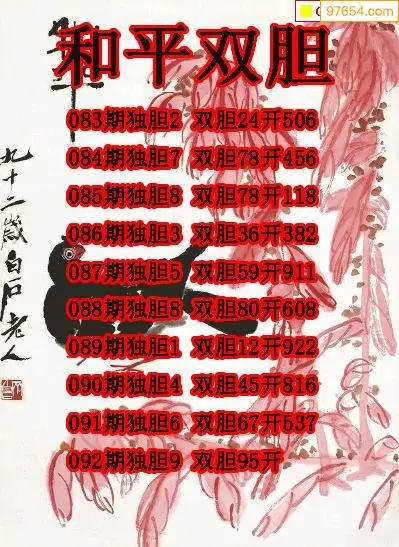 97654.com
和平双胆
083期独胆2 双胆24开506
084期独胆7 双胆78开456
085期独胆8 双胆78开118
086期独胆3 双胆36开382
087期独胆5 双胆59开911
088期独胆8 双胆80开608
089期独胆1 双胆12开922
090期独胆4 双胆45开816
091期独胆6 双胆67开537
092期独胆9 双胆95开
九十二岁白石老人